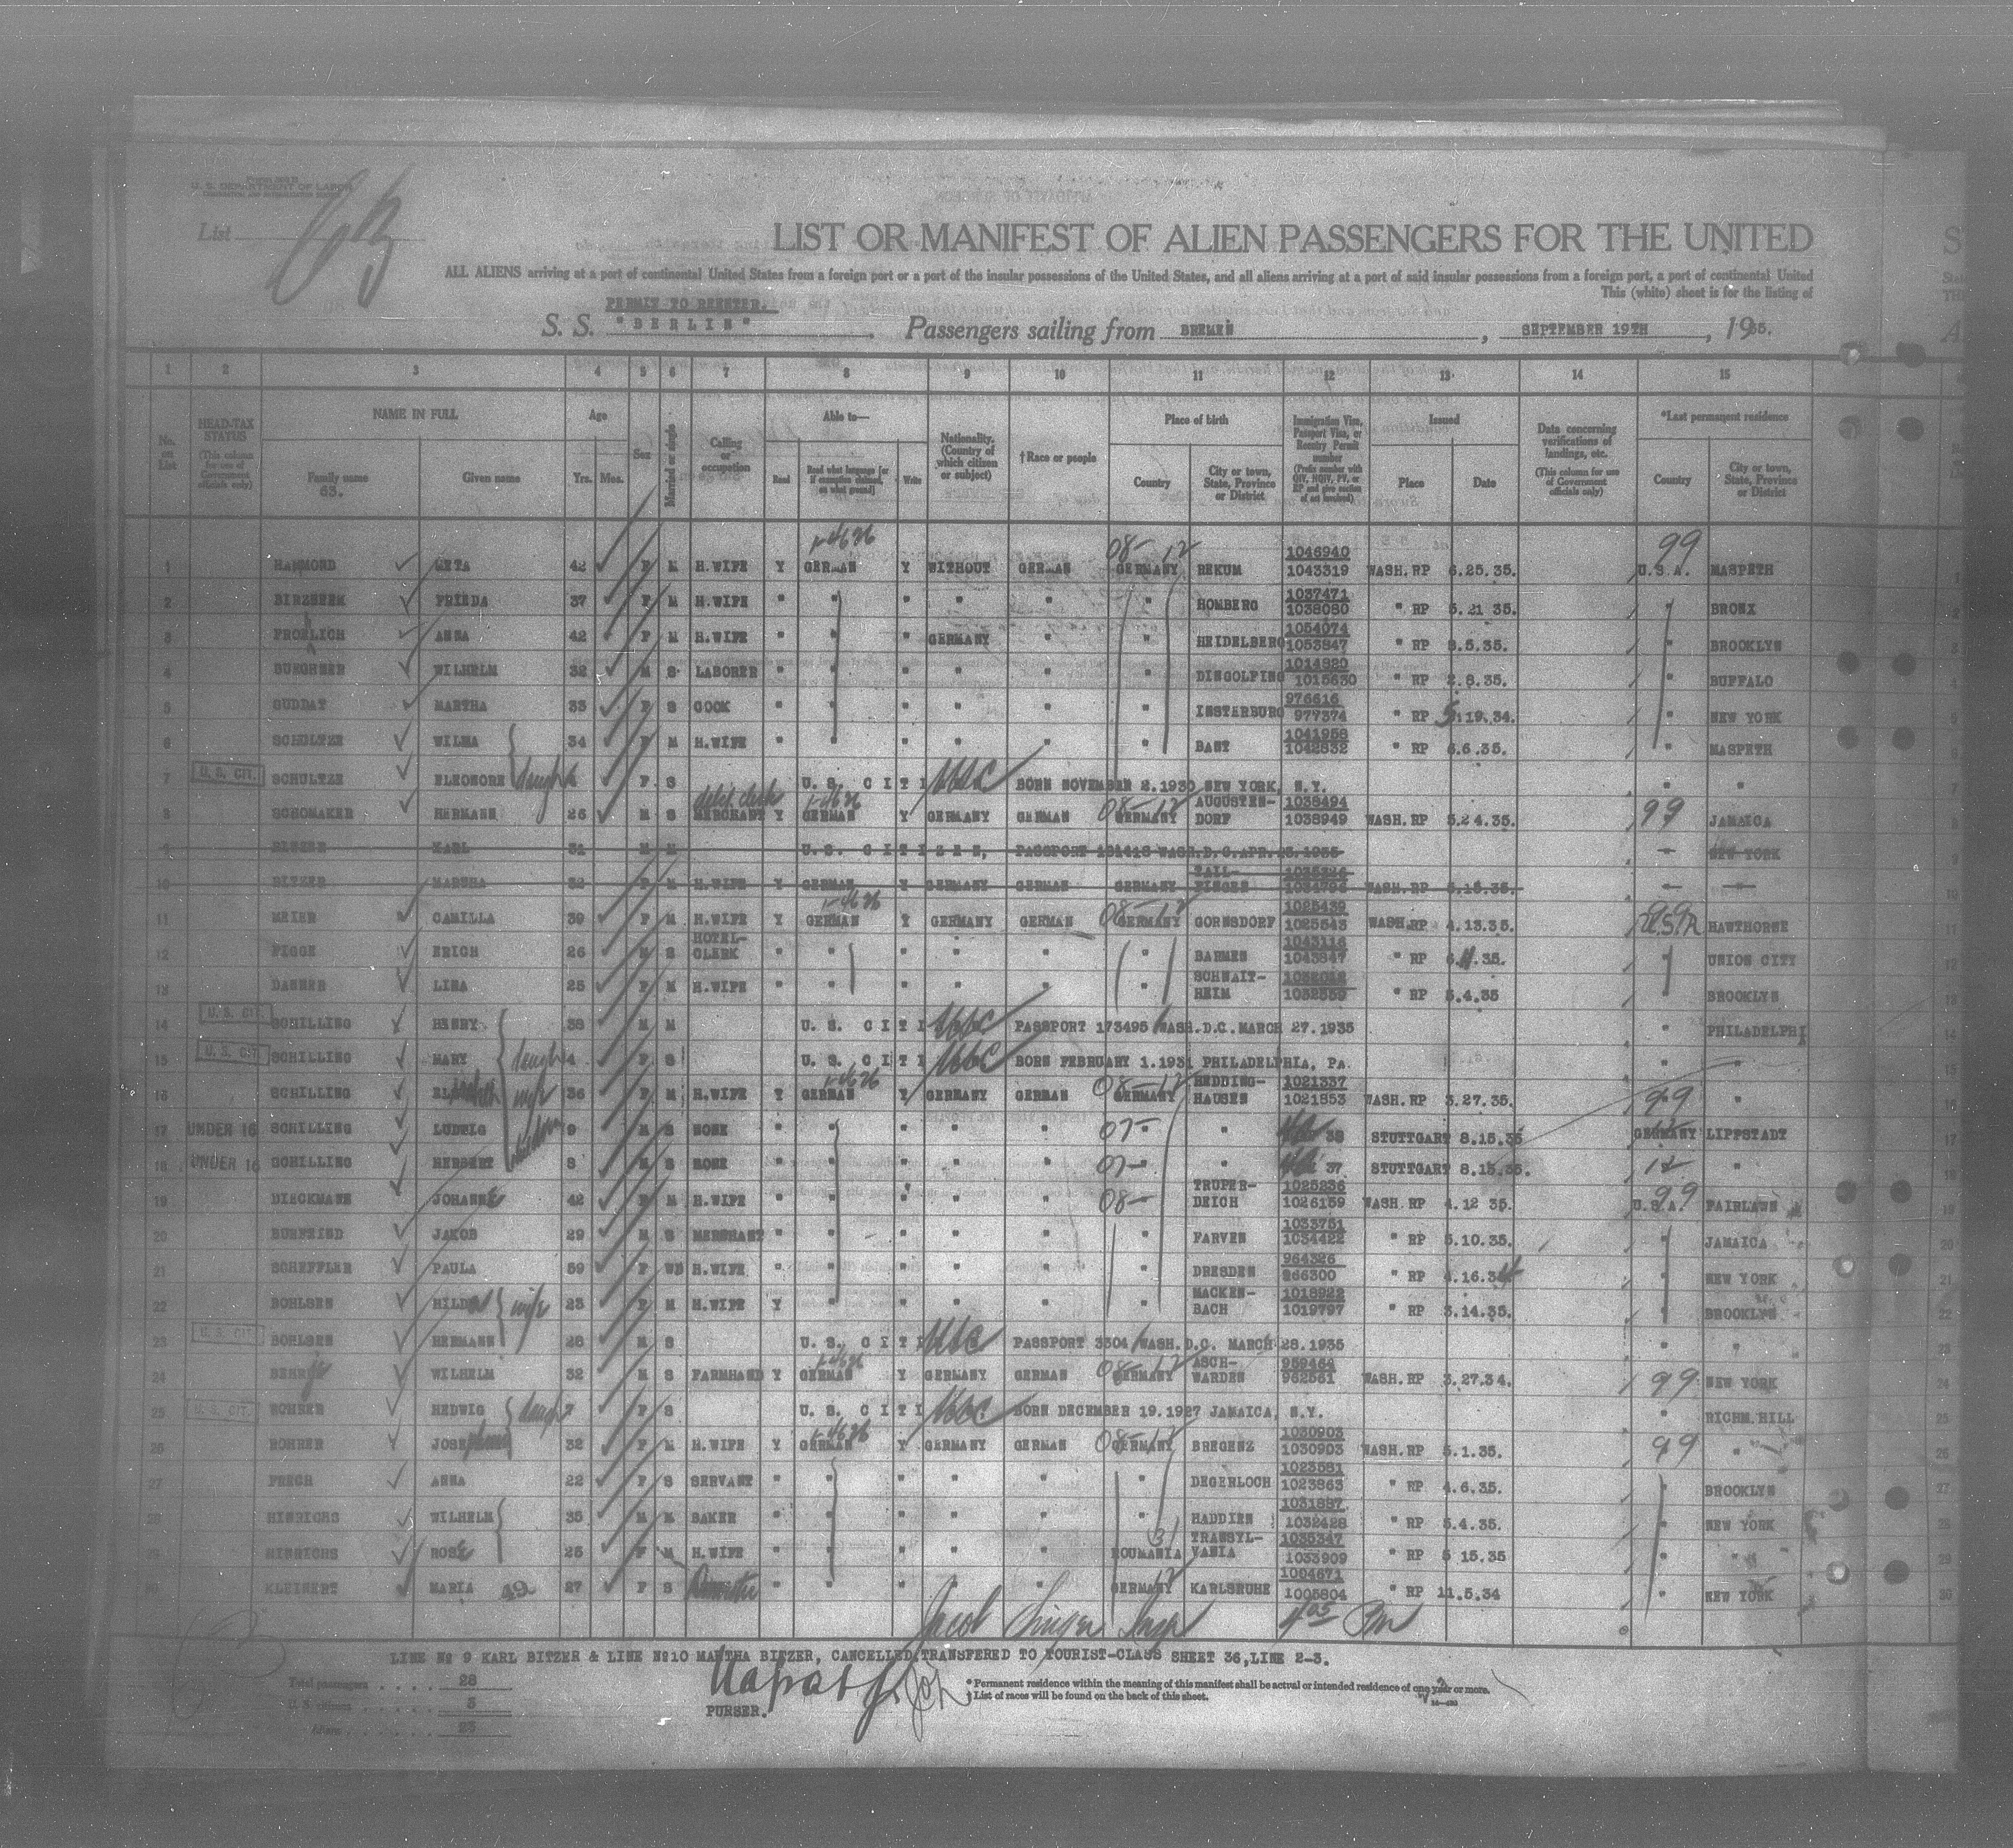 U. S. DEPARTMENT OF LABOR
List
LIST OR MANIFEST OF ALIEN PASSENGERS FOR THE UNITED
ALL ALIENS arriving at a port of continental United States from a foreign port or a port of the insular possessions of the United States, and all aliens arriving at a port of said insular possessions from a foreign port, a port of continental United
This (white) sheet is for the listing of
PERMIT TO REENTER.
S. S. "BERLIN" Passengers sailing from BREMEN, SEPTEMBER 19TH, 1935.
1 2 3 4 5 6 7 8 9 10 11 12 13 14 15
No. on List
HEAD-TAX STATUS (This column for use of Government officials only)
NAME IN FULL Family name 63. Given name
Age Yrs. Mos.
Sex
Married or single
Calling or occupation
Able to— Read Read what language [or if exemption claimed, on what ground] Write
Nationality. (Country of which citizen or subject)
†Race or people
Place of birth Country City or town, State, Province or District
Immigration Visa, Passport Visa, or Reentry Permit number (Prefix number with QIV, NQIV, PV, or RP and give section of act involved)
Issued Place Date
Data concerning verifications of landings, etc. (This column for use of Government officials only)
*Last permanent residence Country City or town, State, Province or District
1 HAMMOND META 42 F M H.WIFE Y GERMAN Y WITHOUT GERMAN GERMANY REKUM 1046940 1043319 WASH. RP 6.25.35. U.S.A. MASPETH
2 FRIEDA 37 F M H.WIFE " " " " " " HOMBERG 1037471 1038080 " RP 5.21 35. " BRONX
3 FROEHLICH ANNA 42 F M H.WIFE " " " GERMANY " " HEIDELBERG 1054074 1053847 " RP 8.5.35. " BROOKLYN
4 WILHELM 32 M S LABORER " " " " " " DINGOLFING 1014820 1015630 " RP 2.8.35. " BUFFALO
5 GUDDAT MARTHA 33 F S COOK " " " " " " INSTERBURG 976616 977374 " RP 5.19.34. " NEW YORK
6 SCHULTZE WILMA 34 F M H.WIFE " " " " " " BANT 1041958 1042832 " RP 6.6.35. " MASPETH
7 U. S. CIT. SCHULTZE ELEONORE daugh 4 F S U. S. CITI USC BORN NOVEMBER 2.1930 NEW YORK, N.Y. " "
8 SCHOMAKER HERMANN 26 M S MERCHANT Y GERMAN Y GERMANY GERMAN GERMANY AUGUSTEN-DORF 1038494 1038949 WASH. RP 5.24.35. 99 JAMAICA
9 BITZER KARL 31 M M U. S. CITIZEN, PASSPORT WASH.D.C. APR. 1935 " NEW YORK
10 BITZER MARTHA 32 F M H.WIFE Y GERMAN Y GERMANY GERMAN GERMANY TAIL-FINGEN WASH. RP 5.15.35. " "
11 MEIER CAMILLA 39 F M H.WIFE Y GERMAN Y GERMANY GERMAN GERMANY GORNSDORF 1025439 1025543 WASH. RP 4.13.35. U.S.A. HAWTHORNE
12 FIGGE ERICH 26 M S HOTEL-CLERK " " " " " " BARMEN 1043116 1043847 " RP 6.11.35. " UNION CITY
13 DANNER LINA 25 F M H.WIFE " " " " " " SCHNAIT-HEIM 1032559 " RP 5.4.35 " BROOKLYN
14 U. S. CIT. SCHILLING HENRY 38 M M U. S. CITI USC PASSPORT 173495 WASH.D.C. MARCH 27.1935 " PHILADELPHI
15 U. S. CIT SCHILLING MARY daugh 4 F S U. S. CITI USC BORN FEBRUARY 1.1931 PHILADELPHIA, PA " "
16 SCHILLING wife 36 F M H.WIFE Y GERMAN Y GERMANY GERMAN GERMANY HEDDING-HAUSEN 1021337 1021853 WASH. RP 3.27.35. 99 "
17 UNDER 16 SCHILLING LUDWIG 9 M S NONE " " " " " " " 38 STUTTGART 8.15.35 GERMANY LIPPSTADT
18 UNDER 16 SCHILLING HERBERT 8 M S NONE " " " " " " " 37 STUTTGART 8.15.35. 12 "
19 DIECKMANN JOHANNE 42 F M H.WIFE " " " " " " TRUPER-DEICH 1025836 1026159 WASH. RP 4.12 35. U.S.A. FAIRLAWN
20 BURFEIND JAKOB 29 M S MERCHANT " " " " " " FARVEN 1033751 1034422 " RP 5.10.35. " JAMAICA
21 SCHEFFLER PAULA 59 F WD H.WIFE " " " " " " DRESDEN 964326 966300 " RP 4.16.34 " NEW YORK
22 BOHLSEN wife 23 F M H.WIFE Y " " " " " MACKEN-BACH 1018922 1019797 " RP 3.14.35. " BROOKLYN
23 U. S. CIT. BOHLSEN HERMANN 28 M S U. S. CITI USC PASSPORT 3304 WASH. D.C. MARCH 28.1935 " "
24 WILHELM 32 M S FARMHAND Y GERMAN Y GERMANY GERMAN GERMANY ASCH-WARDEN 959464 962561 WASH. RP 3.27.34. 99 NEW YORK
25 U. S. CIT. ROHRER HEDWIG daugh 7 F S U. S. CITI USC BORN DECEMBER 19.1927 JAMAICA, N.Y. " RICHM. HILL
26 ROHRER 32 F M H.WIFE Y GERMAN Y GERMANY GERMAN GERMANY BREGENZ 1030903 1030903 WASH. RP 5.1.35. 99 "
27 FRECH ANNA 22 F S SERVANT " " " " " " DEGERLOCH 1023581 1023863 " RP 4.6.35. " BROOKLYN
28 HINRICHS WILHELM 35 M M BAKER " " " " " " HADDIEN 1031887 1032428 " RP 5.4.35. " NEW YORK
29 HINRICHS ROSE 25 F M H.WIFE " " " " " ROUMANIA TRANSYL-VANIA 1035347 1033909 " RP 5 15.35 " "
30 KLEINERT MARIA 49 27 F S " " " " " GERMANY KARLSRUHE 1004671 1005804 " RP 11.5.34 " NEW YORK
Jacob Singer Insp
LINE No 9 KARL BITZER & LINE No 10 MARTHA BITZER, CANCELLED, TRANSFERED TO TOURIST-CLASS SHEET 36, LINE 2-3.
Total passengers . . . . 28
U. S. citizens . . . . . 5
Aliens . . . . . 23
PURSER.
* Permanent residence within the meaning of this manifest shall be actual or intended residence of one year or more.
† List of races will be found on the back of this sheet.